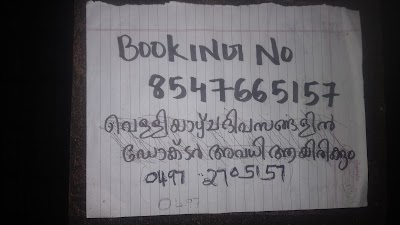 BOOKING NO
8547665157
വെള്ളിയാഴ്ച ദിവസങ്ങളിൽ
ഡോക്ടർ അവധി ആയിരിക്കും
0497 2705157